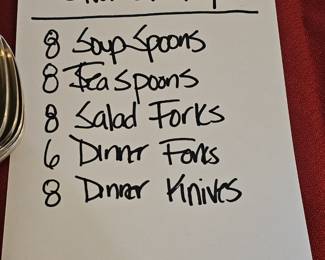 8 Soup Spoons
8 Teaspoons
8 Salad Forks
6 Dinner Forks
8 Dinner Knives